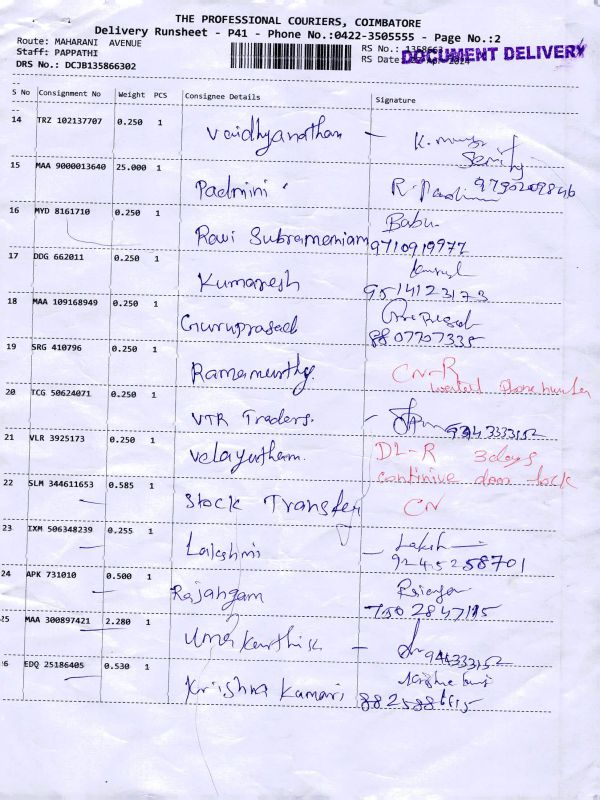 THE PROFESSIONAL COURIERS, COIMBATORE
Delivery Runsheet - P41 - Phone No.:0422-3505555 - Page No.:2
Route: MAHARANI AVENUE
RS No.: 1358663
DOCUMENT DELIVERY
Staff: PAPPATHI
RS Date:
DRS No.: DCJB135866302
S No Consignment No Weight PCS Consignee Details Signature
14 TRZ 102137707 0.250 1
Vaidhyanathan -
15 MAA 9000013640 25.000 1
Padmini 9790209846
16 MYD 8161710 0.250 1 Babu
Ravi Subramaniam 9710919977
17 DDG 662011 0.250 1
Kumaresh 9514123173
18 MAA 109168949 0.250 1
Guruprasad 8807207335
19 SRG 410796 0.250 1
Ramamurthy. CN-R
phone number
20 TCG 50624071 0.250 1
VTR Traders. - 9443333152
21 VLR 3925173 0.250 1
Velayutham. DL-R 3 days
continive door lock
22 SLM 344611653 0.585 1
Stock Transfer CN
23 IXM 506348239 0.255 1
Lakshmi - Laksh
9245258701
24 APK 731010 0.500 1
Rajangam
7502847195
25 MAA 300897421 2.280 1
Uma Karthik -
26 EDQ 25186405 0.530 1
Krishna Kumari 8825886615